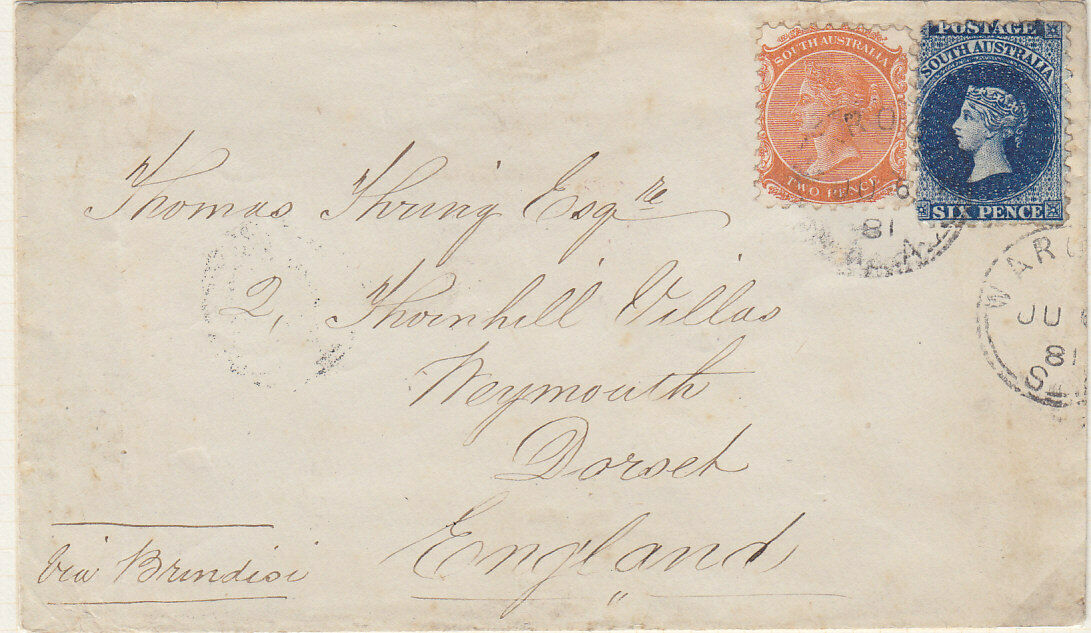 POSTAGE
SOUTH AUSTRALIA
SOUTH AUSTRALIA
TWO PENCE
SIX PENCE
81
WARO
JU
81
S
Thomas Thring Esqre
2, Thornhill Villas
Weymouth
Dorset
England
Via Brindisi